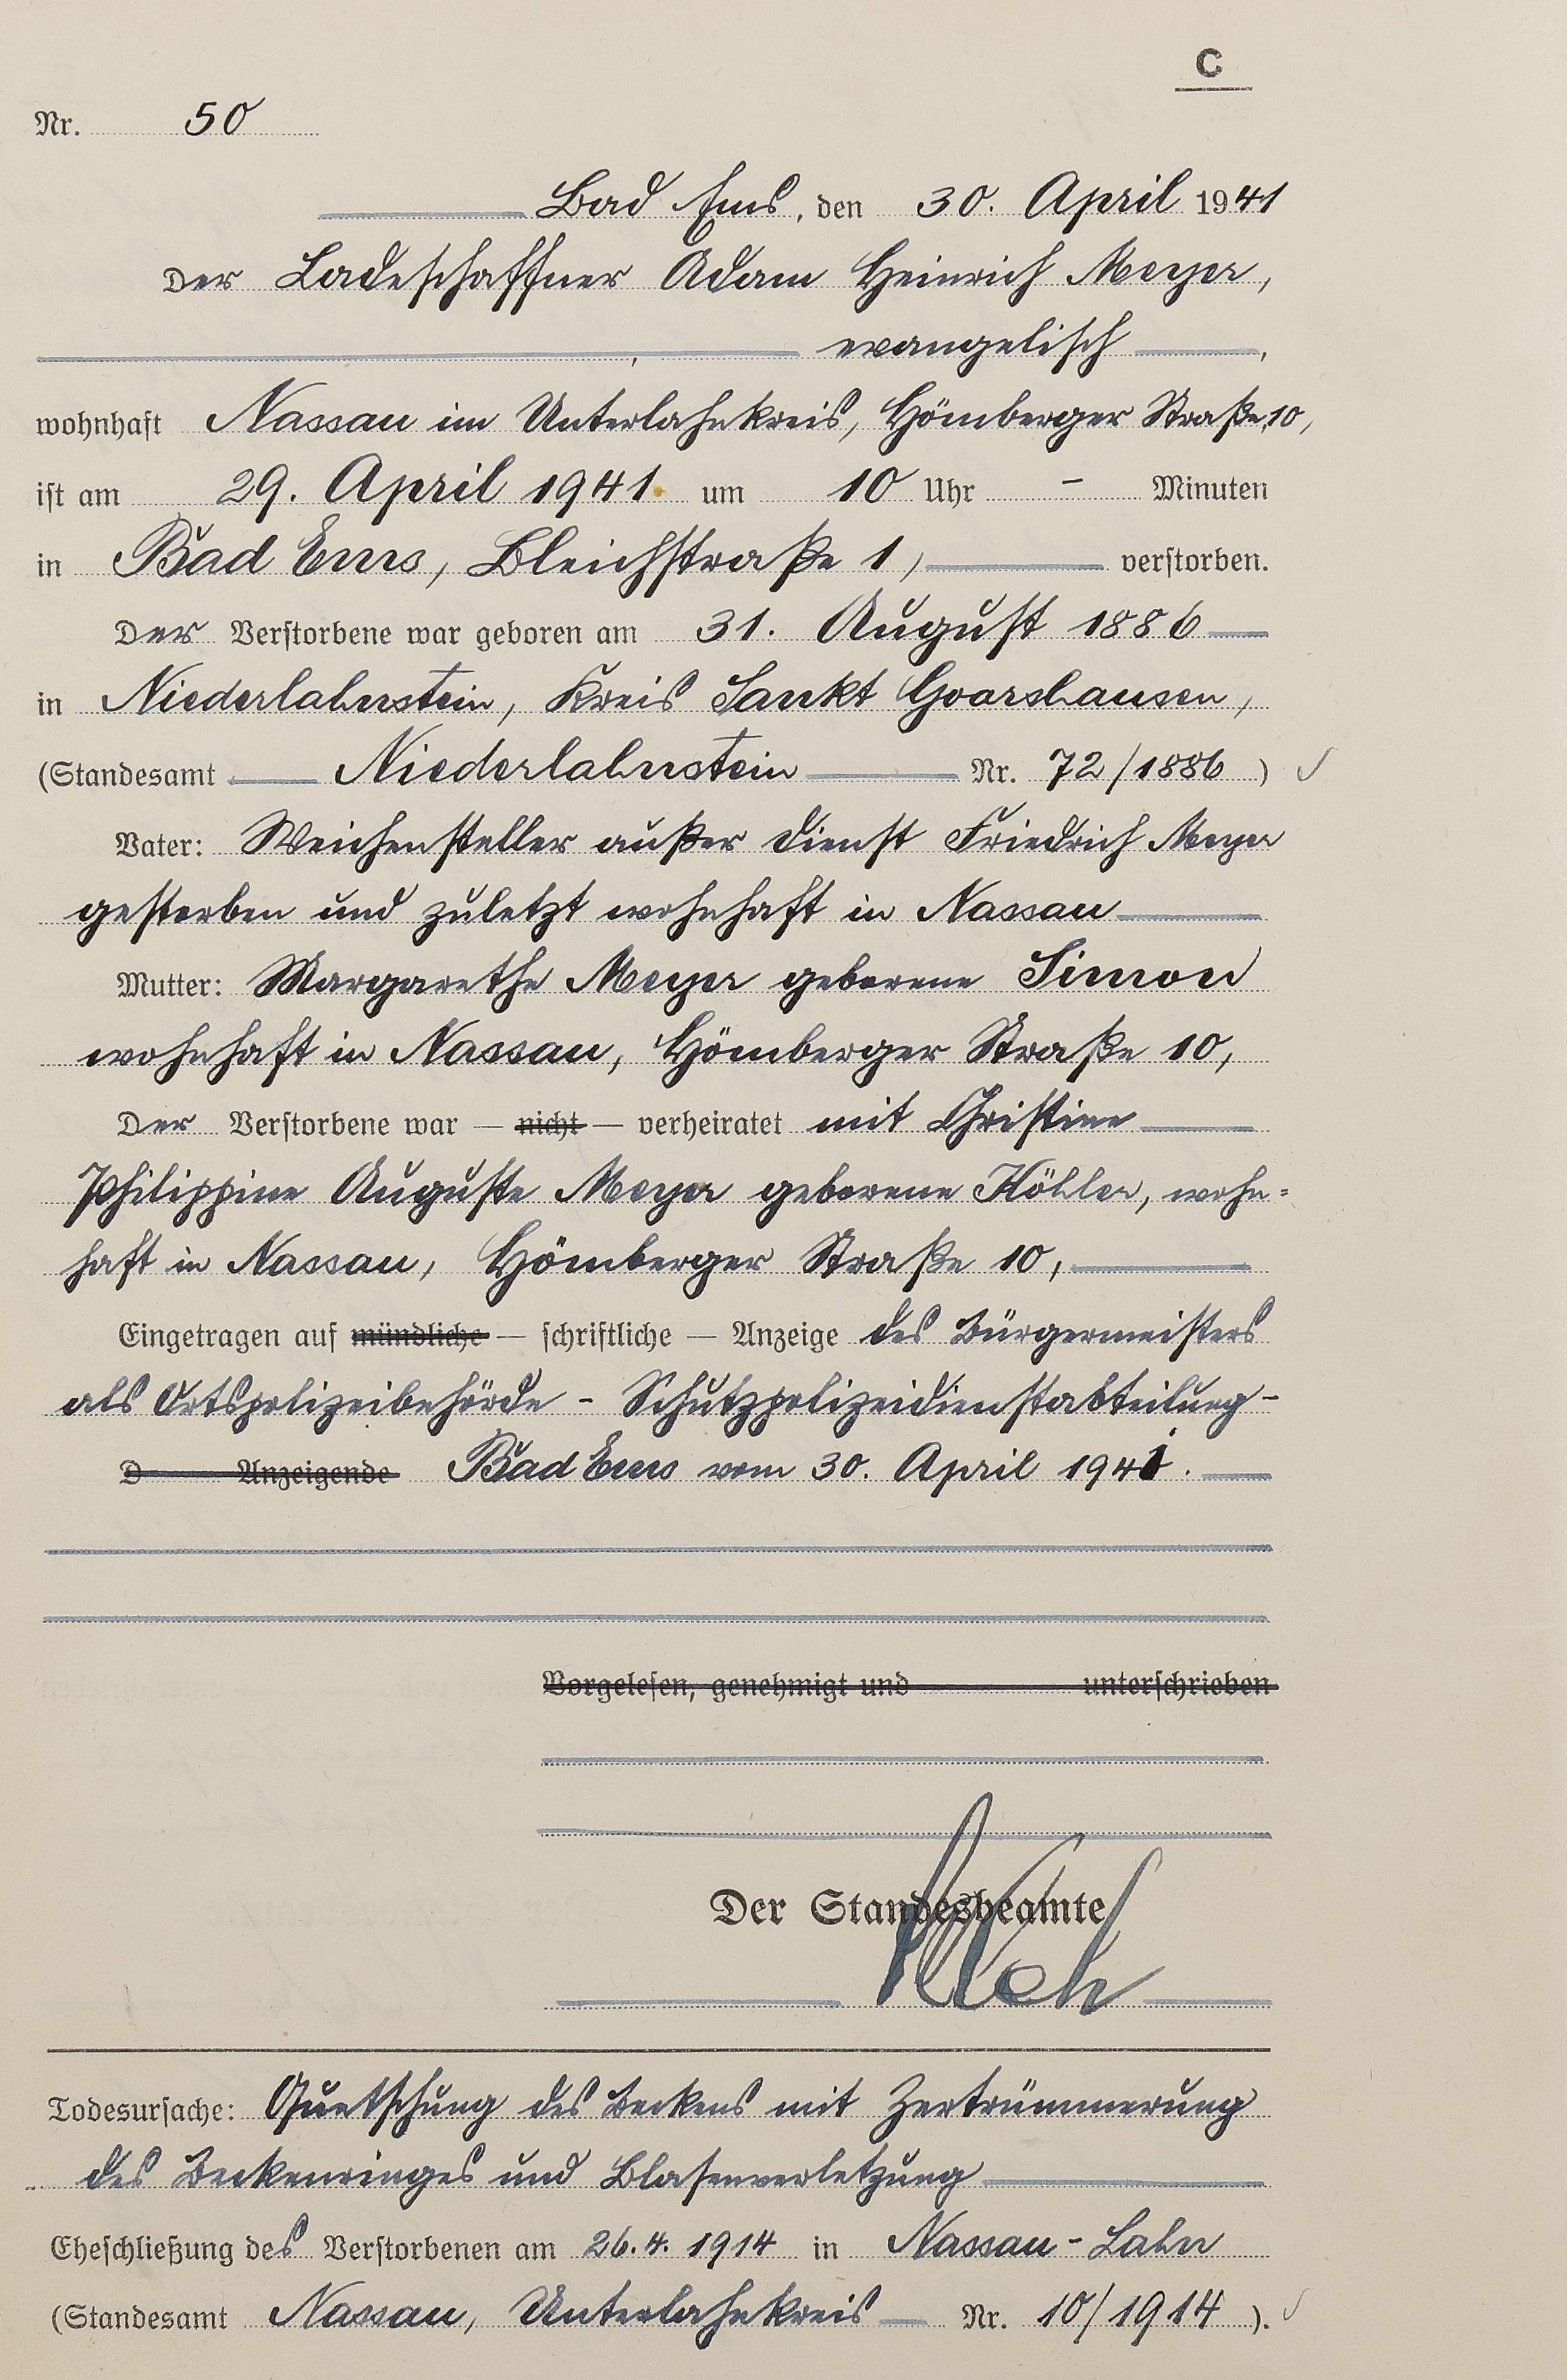 C
Nr. 50
Bad Ems, den 30. April 1941
Der Ladeschaffner Adam Heinrich Meyer,
, evangelisch ,
wohnhaft Nassau im Unterlahnkreis, Hömberger Straße 10,
ist am 29. April 1941 um 10 Uhr - Minuten
in Bad Ems, Bleichstraße 1, verstorben.
Der Verstorbene war geboren am 31. August 1886
in Niederlahnstein, Kreis Sankt Goarshausen,
(Standesamt Niederlahnstein Nr. 72/1886 )
Vater: Weichensteller außer Dienst Friedrich Meyer
gestorben und zuletzt wohnhaft in Nassau
Mutter: Margarethe Meyer geborene Simon
wohnhaft in Nassau, Hömberger Straße 10,
Der Verstorbene war — nicht — verheiratet mit Christine
Philippine Auguste Meyer geborene Köhler, wohn=
haft in Nassau, Hömberger Straße 10,
Eingetragen auf mündliche — schriftliche — Anzeige des Bürgermeisters
als Ortspolizeibehörde - Schutzpolizeidienstabteilung -
D Anzeigende Bad Ems vom 30. April 1941.
Vorgelesen, genehmigt und unterschrieben
Der Standesbeamte
Todesursache: Quetschung des Beckens mit Zertrümmerung
des Beckenringes und Blasenverletzung
Eheschließung des Verstorbenen am 26.4.1914 in Nassau-Lahn
(Standesamt Nassau, Unterlahnkreis Nr. 10/1914 ).